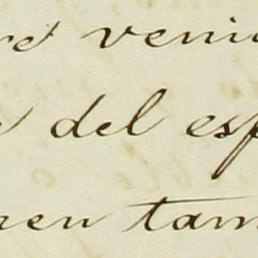 re veni
del esp
ren tam